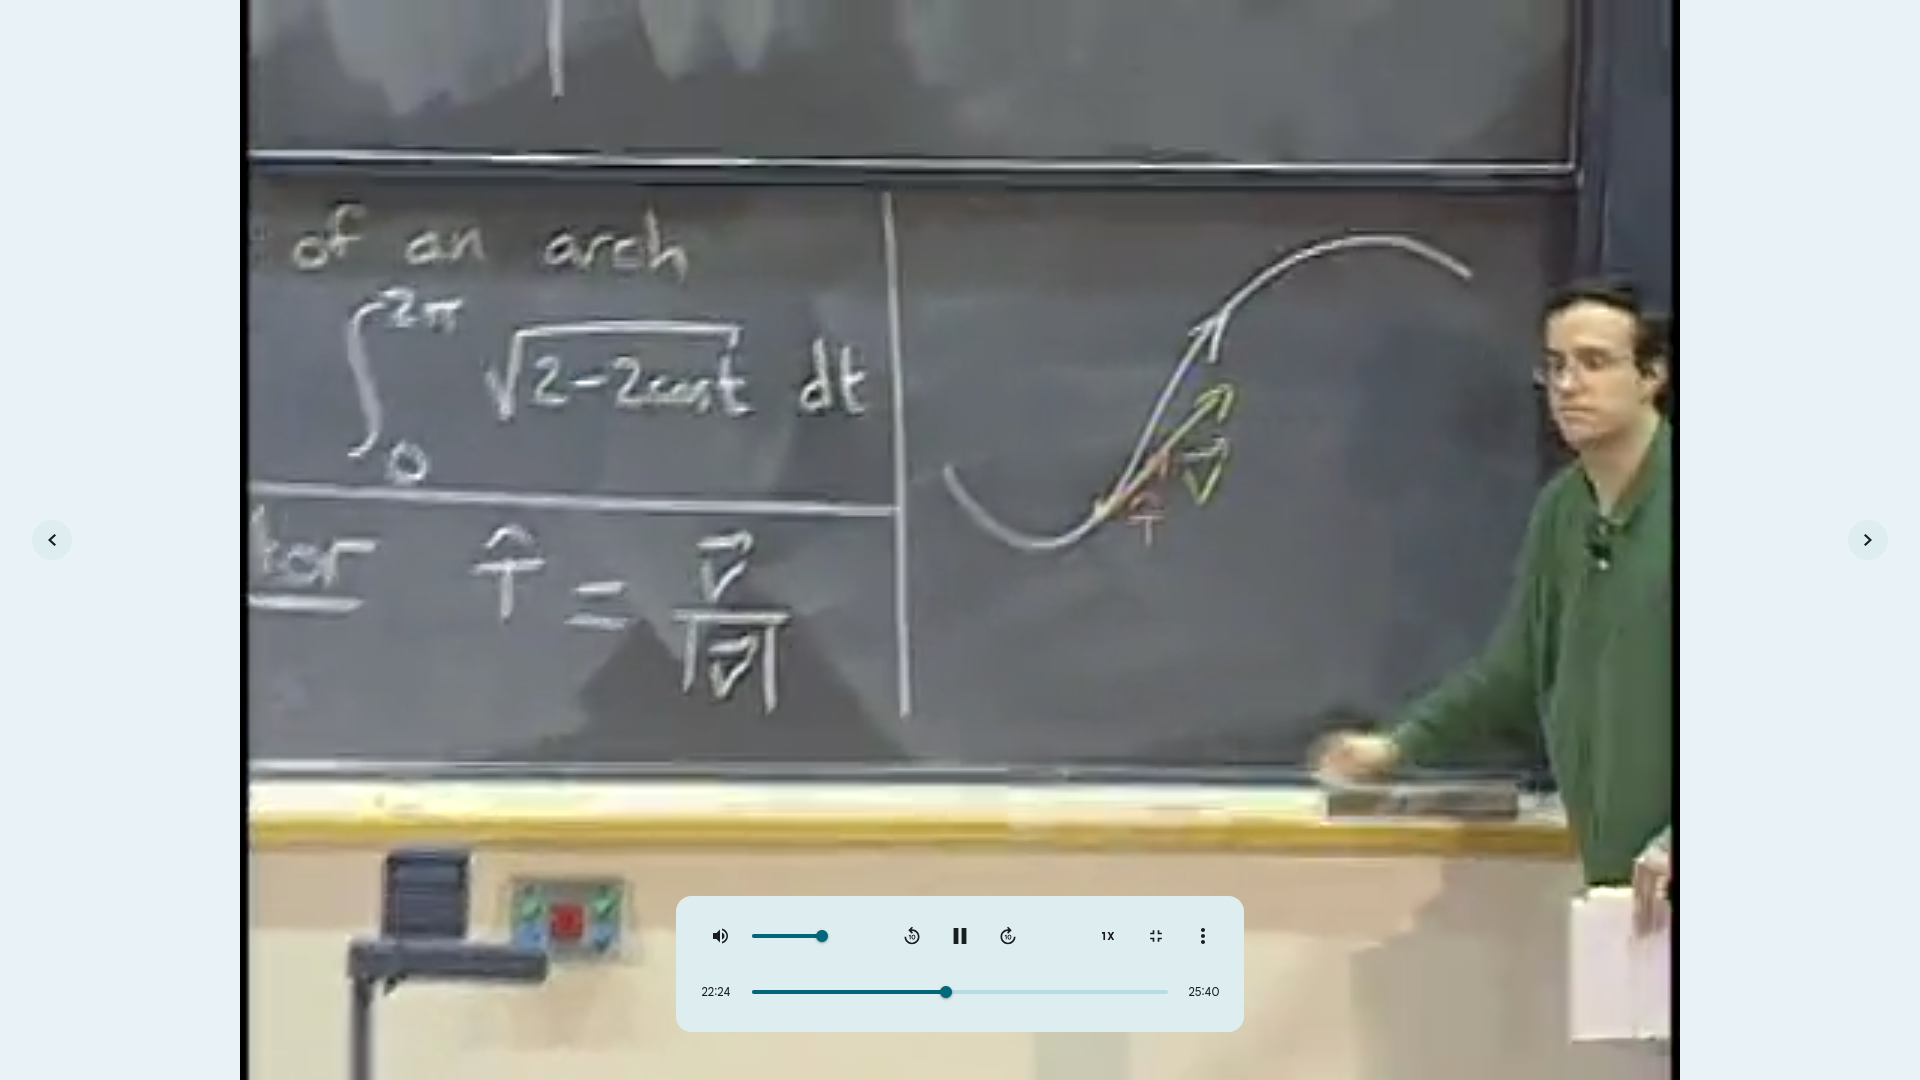 of an arch
∫₀^{2π} √(2-2cos t) dt
tor T̂ = v⃗ / |v⃗|
v⃗
T̂
10
10
1X
22:24
25:40